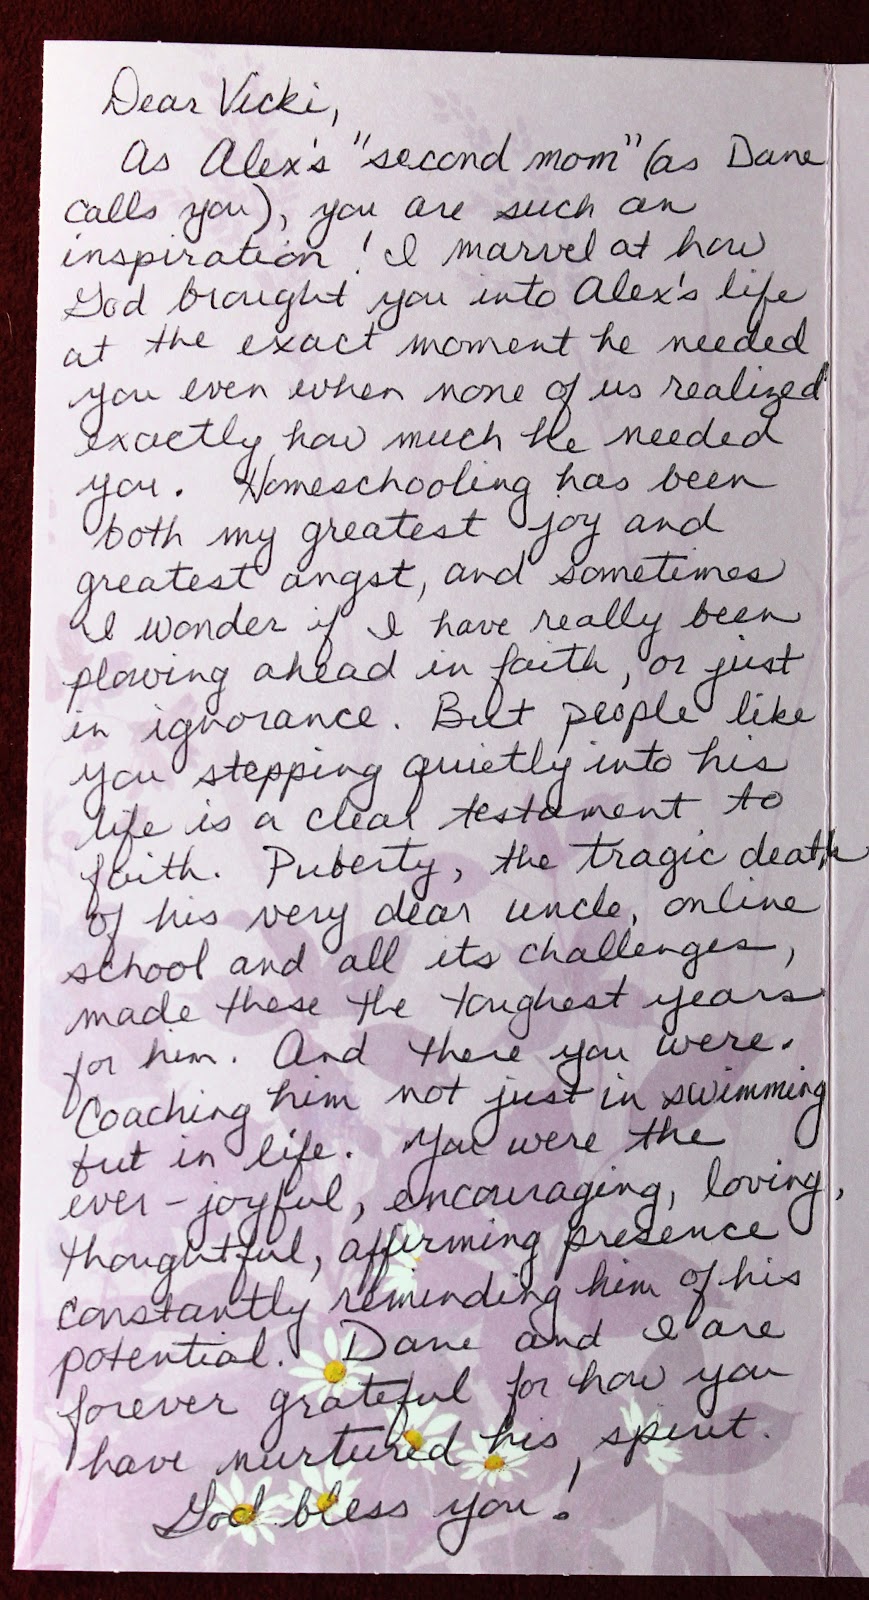 Dear Vicki,
As Alex's "second mom" (as Dane
calls you), you are such an
inspiration! I marvel at how
God brought you into Alex's life
at the exact moment he needed
you even when none of us realized
exactly how much he needed
you. Homeschooling has been
both my greatest joy and
greatest angst, and sometimes
I wonder if I have really been
plowing ahead in faith, or just
in ignorance. But people like
you stepping quietly into his
life is a clear testament to
faith. Puberty, the tragic death
of his very dear uncle, online
school and all its challenges,
made these the toughest years
for him. And there you were.
Coaching him not just in swimming
but in life. You were the
ever-joyful, encouraging, loving,
thoughtful, affirming presence
constantly reminding him of his
potential. Dane and I are
forever grateful for how you
have nurtured his spirit.
God bless you!